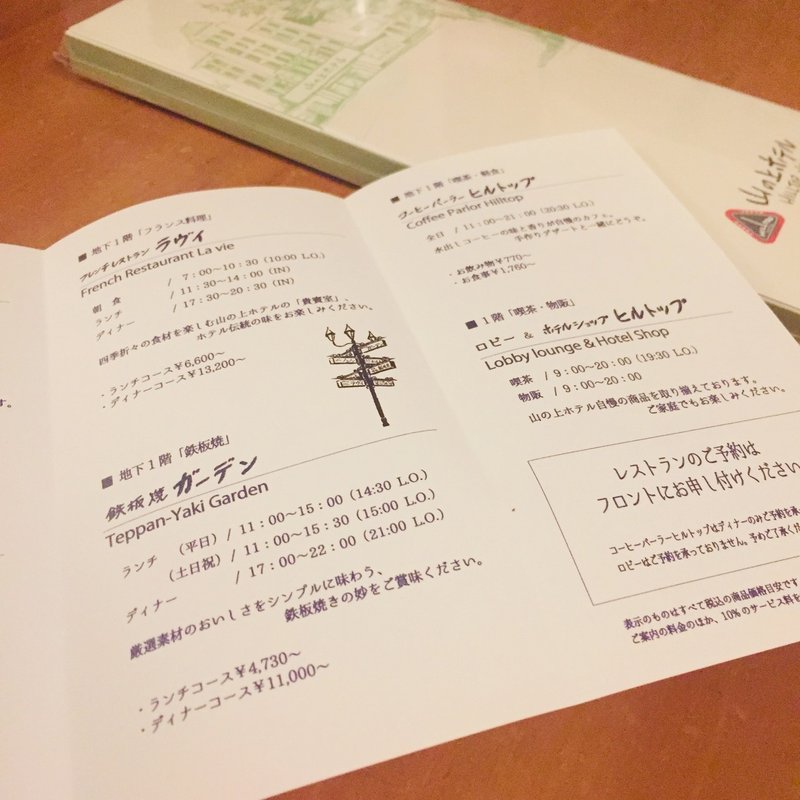 す。
■ 地下1階「フランス料理」
フレンチレストラン ラヴィ
French Restaurant La vie
朝 食 / 7：00～10：30（10:00 L.O.）
ランチ / 11：30～14：00（IN）
ディナー / 17：30～20：30（IN）
四季折々の食材を楽しむ山の上ホテルの「貴賓室、
ホテル伝統の味をお楽しみください。
・ランチコース￥6,600～
・ディナーコース￥13,200～
■ 地下1階「鉄板焼」
鉄板焼 ガーデン
Teppan-Yaki Garden
ランチ （平日）/ 11：00～15：00（14:30 L.O.）
（土日祝）/ 11：00～15：30（15:00 L.O.）
ディナー / 17：00～22：00（21:00 L.O.）
厳選素材のおいしさをシンプルに味わう、
鉄板焼きの妙をご賞味ください。
・ランチコース￥4,730～
・ディナーコース￥11,000～
■ 地下1階「喫茶・軽食」
コーヒーパーラー ヒルトップ
Coffee Parlor Hilltop
全日 / 11：00～21：00（20:30 L.O.）
水出しコーヒーの味と香りが自慢のカフェ。
手作りデザートと一緒にどうぞ。
・お飲み物￥770～
・お食事￥1,760～
■ 1階「喫茶・物販」
ロビー & ホテルショップ ヒルトップ
Lobby lounge & Hotel Shop
喫茶 / 9：00～20：00（19:30 L.O.）
物販 / 9：00～20：00
山の上ホテル自慢の商品を取り揃えております。
ご家庭でもお楽しみください。
レストランのご予約は
フロントにお申し付けください
コーヒーパーラーヒルトップはディナーのみご予約を承
ロビーはご予約を承っておりません。予めご了承くだ
表示のものはすべて税込の商品価格目安です
ご案内の料金のほか、10%のサービス料を
山の上ホテル